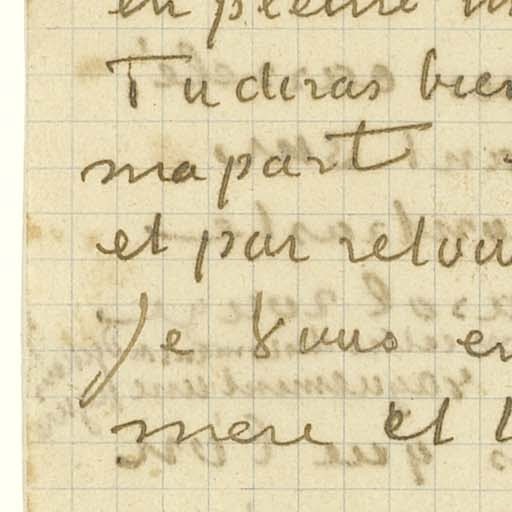 en pleine
Tu diras bien
ma part
et par retou
Je vous en
mere et